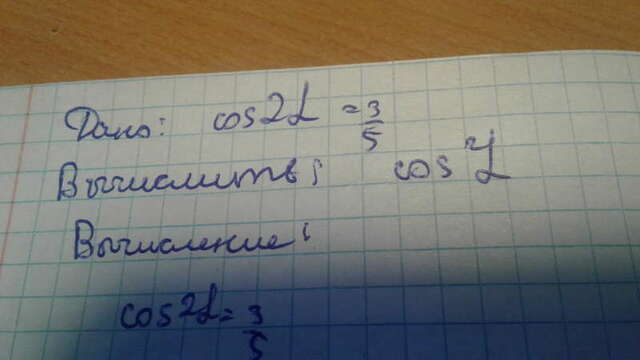 Дано: cos2α = 3/5
Вычислить: cos⁴α
Вычисление:
cos2α = 3/5